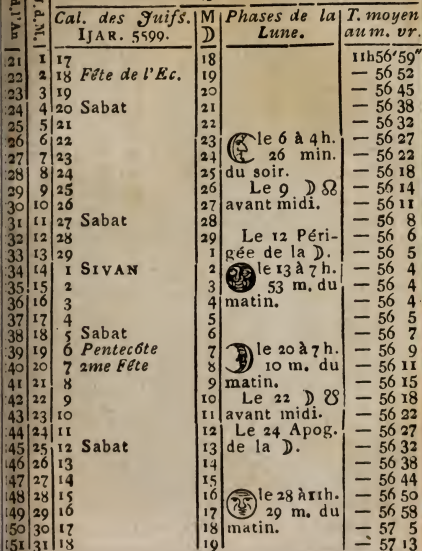 d. l'An
d. M.
Cal. des Juifs. M Phases de la T. moyen
IJAR. 5599. D Lune. au m. vr.
21 1 17 18 11h56'59"
22 2 18 Fête de l'Ec. 19 — 56 52
23 3 19 20 — 56 45
24 4 20 Sabat 21 — 56 38
25 5 21 22 — 56 32
26 6 22 23 le 6 à 4h. — 56 27
27 7 23 24 26 min. — 56 22
28 8 24 25 du soir. — 56 18
29 9 25 26 Le 9 ☽ ☊ — 56 14
30 10 26 27 avant midi. — 56 11
31 11 27 Sabat 28 — 56 8
32 12 28 29 Le 12 Péri- — 56 6
33 13 29 1 gée de la ☽. — 56 5
34 14 1 SIVAN 2 le 13 à 7 h. — 56 4
35 15 2 3 53 m. du — 56 4
36 16 3 4 matin. — 56 4
37 17 4 5 — 56 5
38 18 5 Sabat 6 — 56 7
39 19 6 Pentecôte 7 le 20 à 7 h. — 56 9
40 20 7 2me Fête 8 10 m. du — 56 11
41 21 8 9 matin. — 56 15
42 22 9 10 Le 22 ☽ ☋ — 56 18
43 23 10 11 avant midi. — 56 22
44 24 11 12 Le 24 Apog. — 56 27
45 25 12 Sabat 13 de la ☽. — 56 32
46 26 13 14 — 56 38
47 27 14 15 — 56 44
48 28 15 16 le 28 à 11h. — 56 50
49 29 16 17 29 m. du — 56 58
50 30 17 18 matin. — 57 5
51 31 18 19 — 57 13